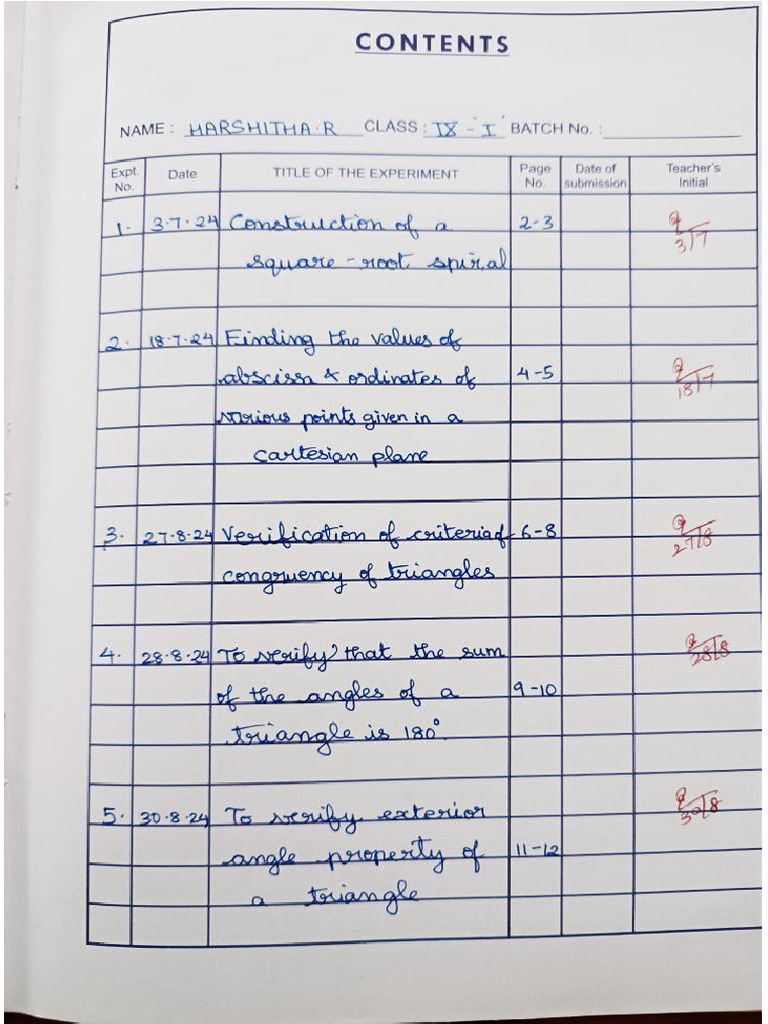 CONTENTS
NAME : HARSHITHA.R CLASS : IX - 'I' BATCH No. :
Expt. No. Date TITLE OF THE EXPERIMENT Page No. Date of submission Teacher's Initial
1. 3.7.24 Construction of a 2-3
square-root spiral 3/7
2. 18.7.24 Finding the values of
abscissa & ordinates of 4-5 18/7
various points given in a
cartesian plane
3. 27.8.24 Verification of criteria of 6-8 27/8
congruency of triangles
4. 28.8.24 To verify that the sum 28/8
of the angles of a 9-10
triangle is 180°.
5. 30.8.24 To verify exterior 30/8
angle property of 11-12
a triangle